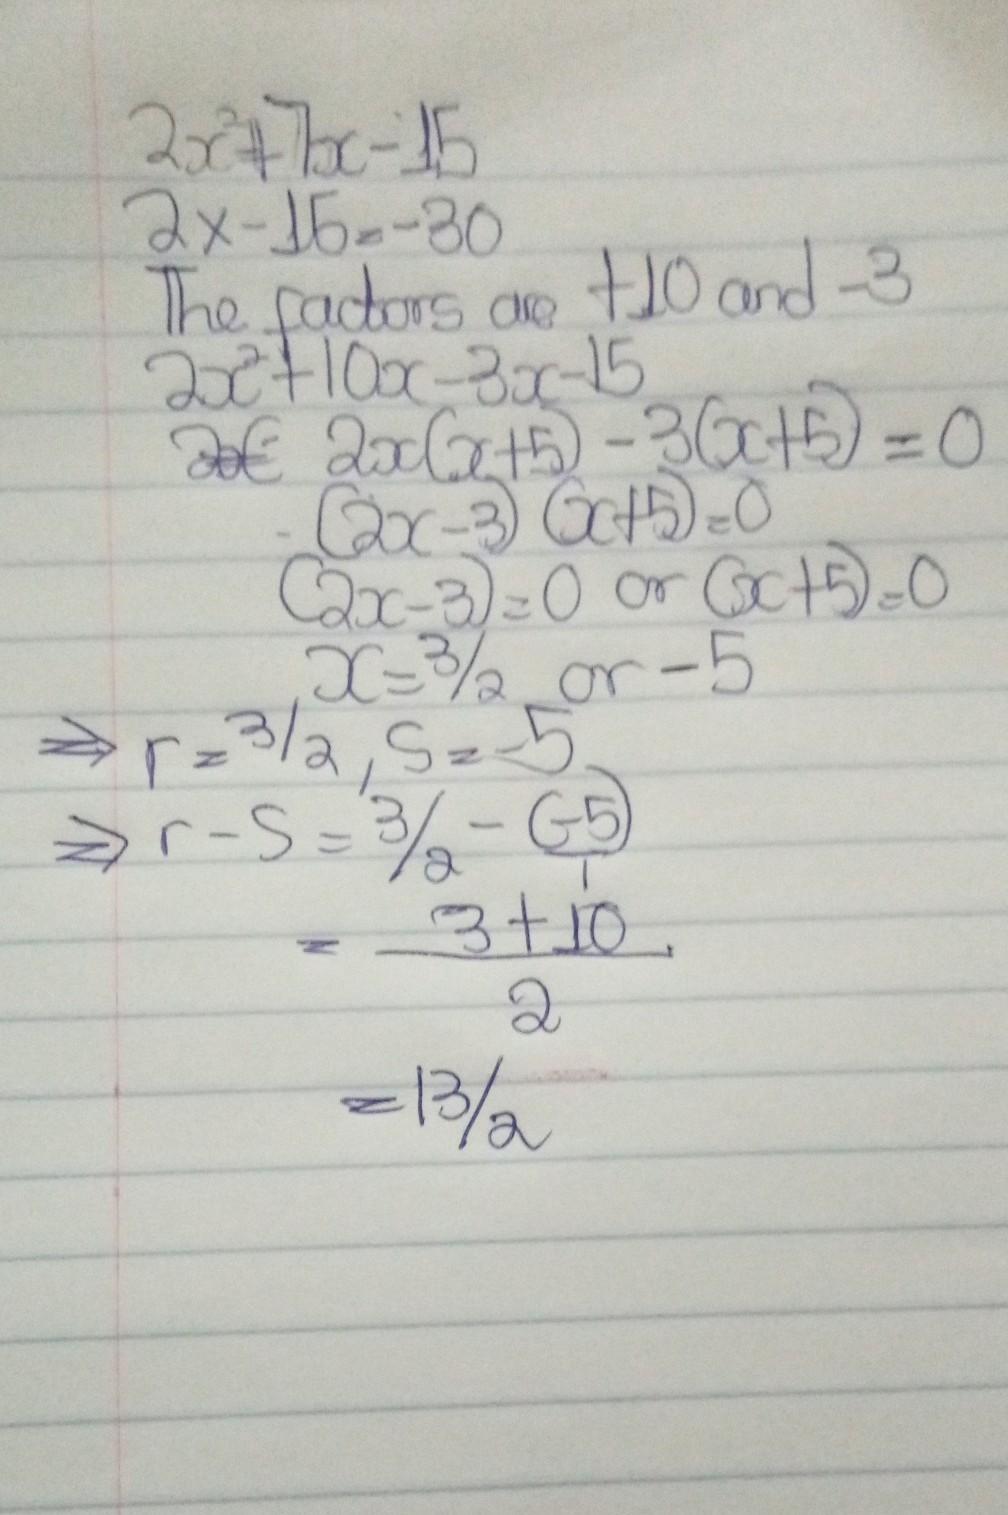 2x²+7x-15
2x-15=-30
The factors are +10 and -3
2x²+10x-3x-15
2x(x+5)-3(x+5)=0
(2x-3)(x+5)=0
(2x-3)=0 or (x+5)=0
x=3/2 or -5
⇒ r=3/2, S=-5
⇒ r-S=3/2-(-5)
1
= 3+10
2
=13/2